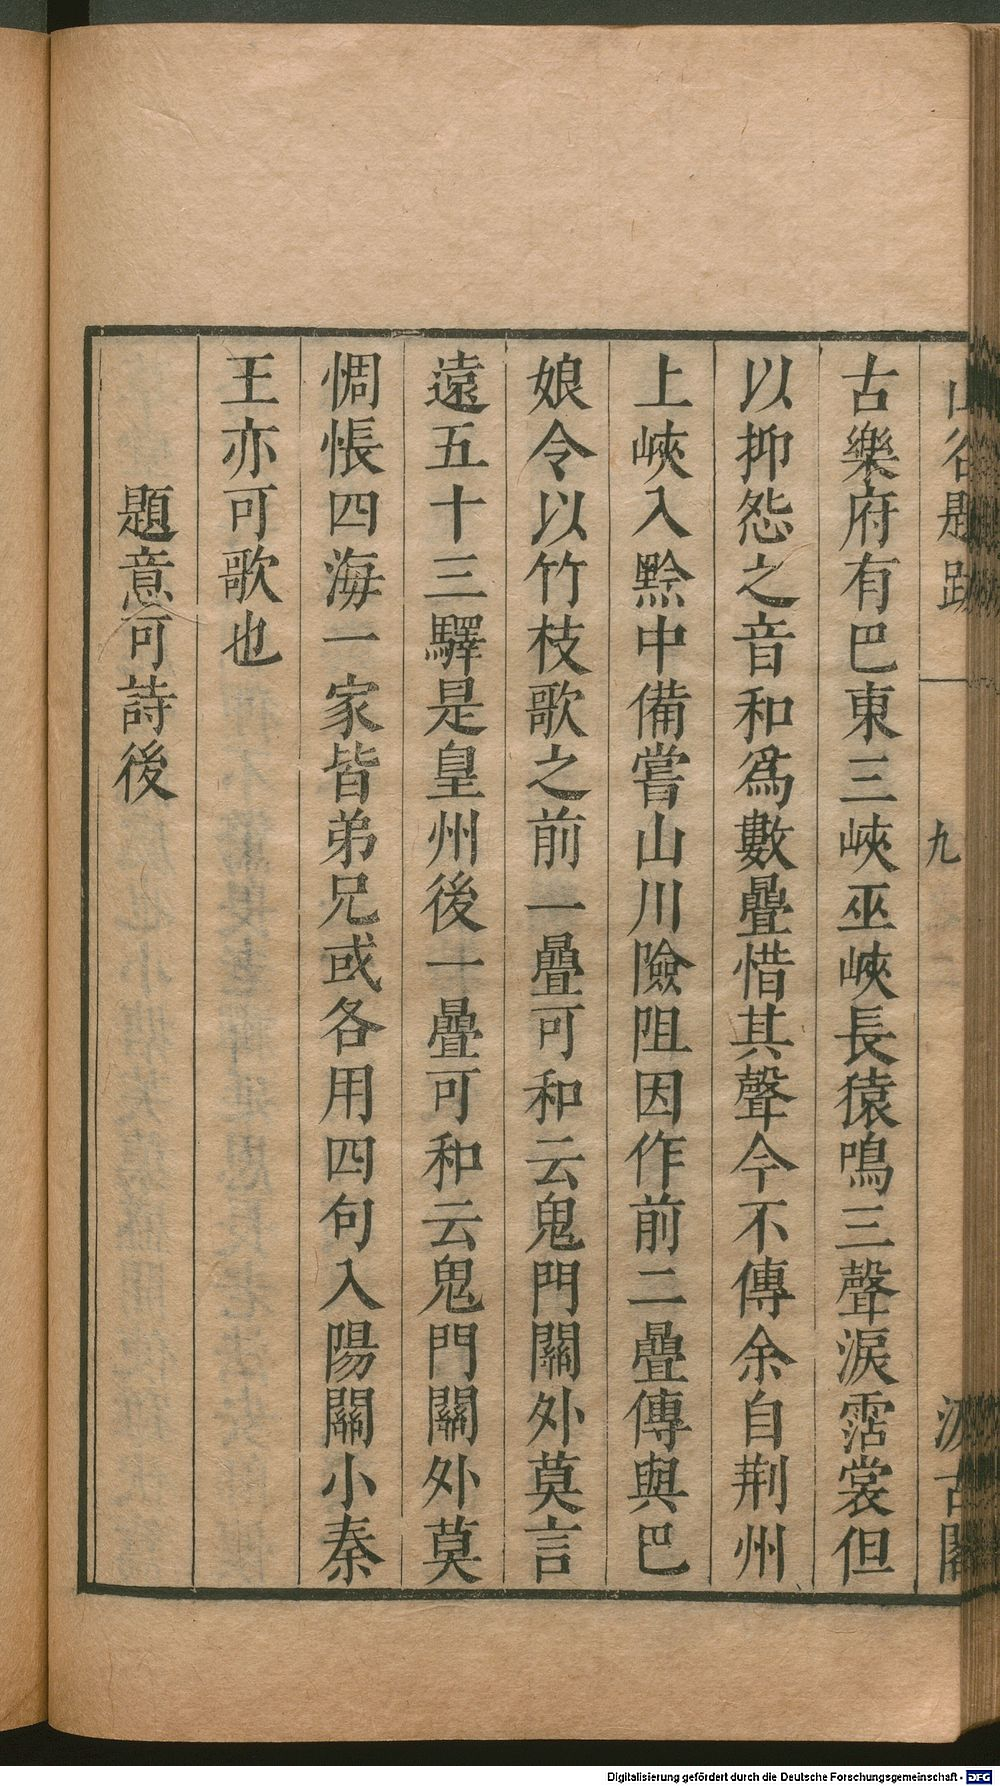 山谷題跋 九 汲古閣
古樂府有巴東三峽巫峽長猿鳴三聲淚霑裳但
以抑怨之音和爲數疊惜其聲今不傳余自荆州
上峽入黔中備嘗山川險阻因作前二疊傳與巴
娘令以竹枝歌之前一疊可和云鬼門關外莫言
遠五十三驛是皇州後一疊可和云鬼門關外莫
惆悵四海一家皆弟兄或各用四句入陽關小秦
王亦可歌也
題意可詩後
Digitalisierung gefördert durch die Deutsche Forschungsgemeinschaft - DFG